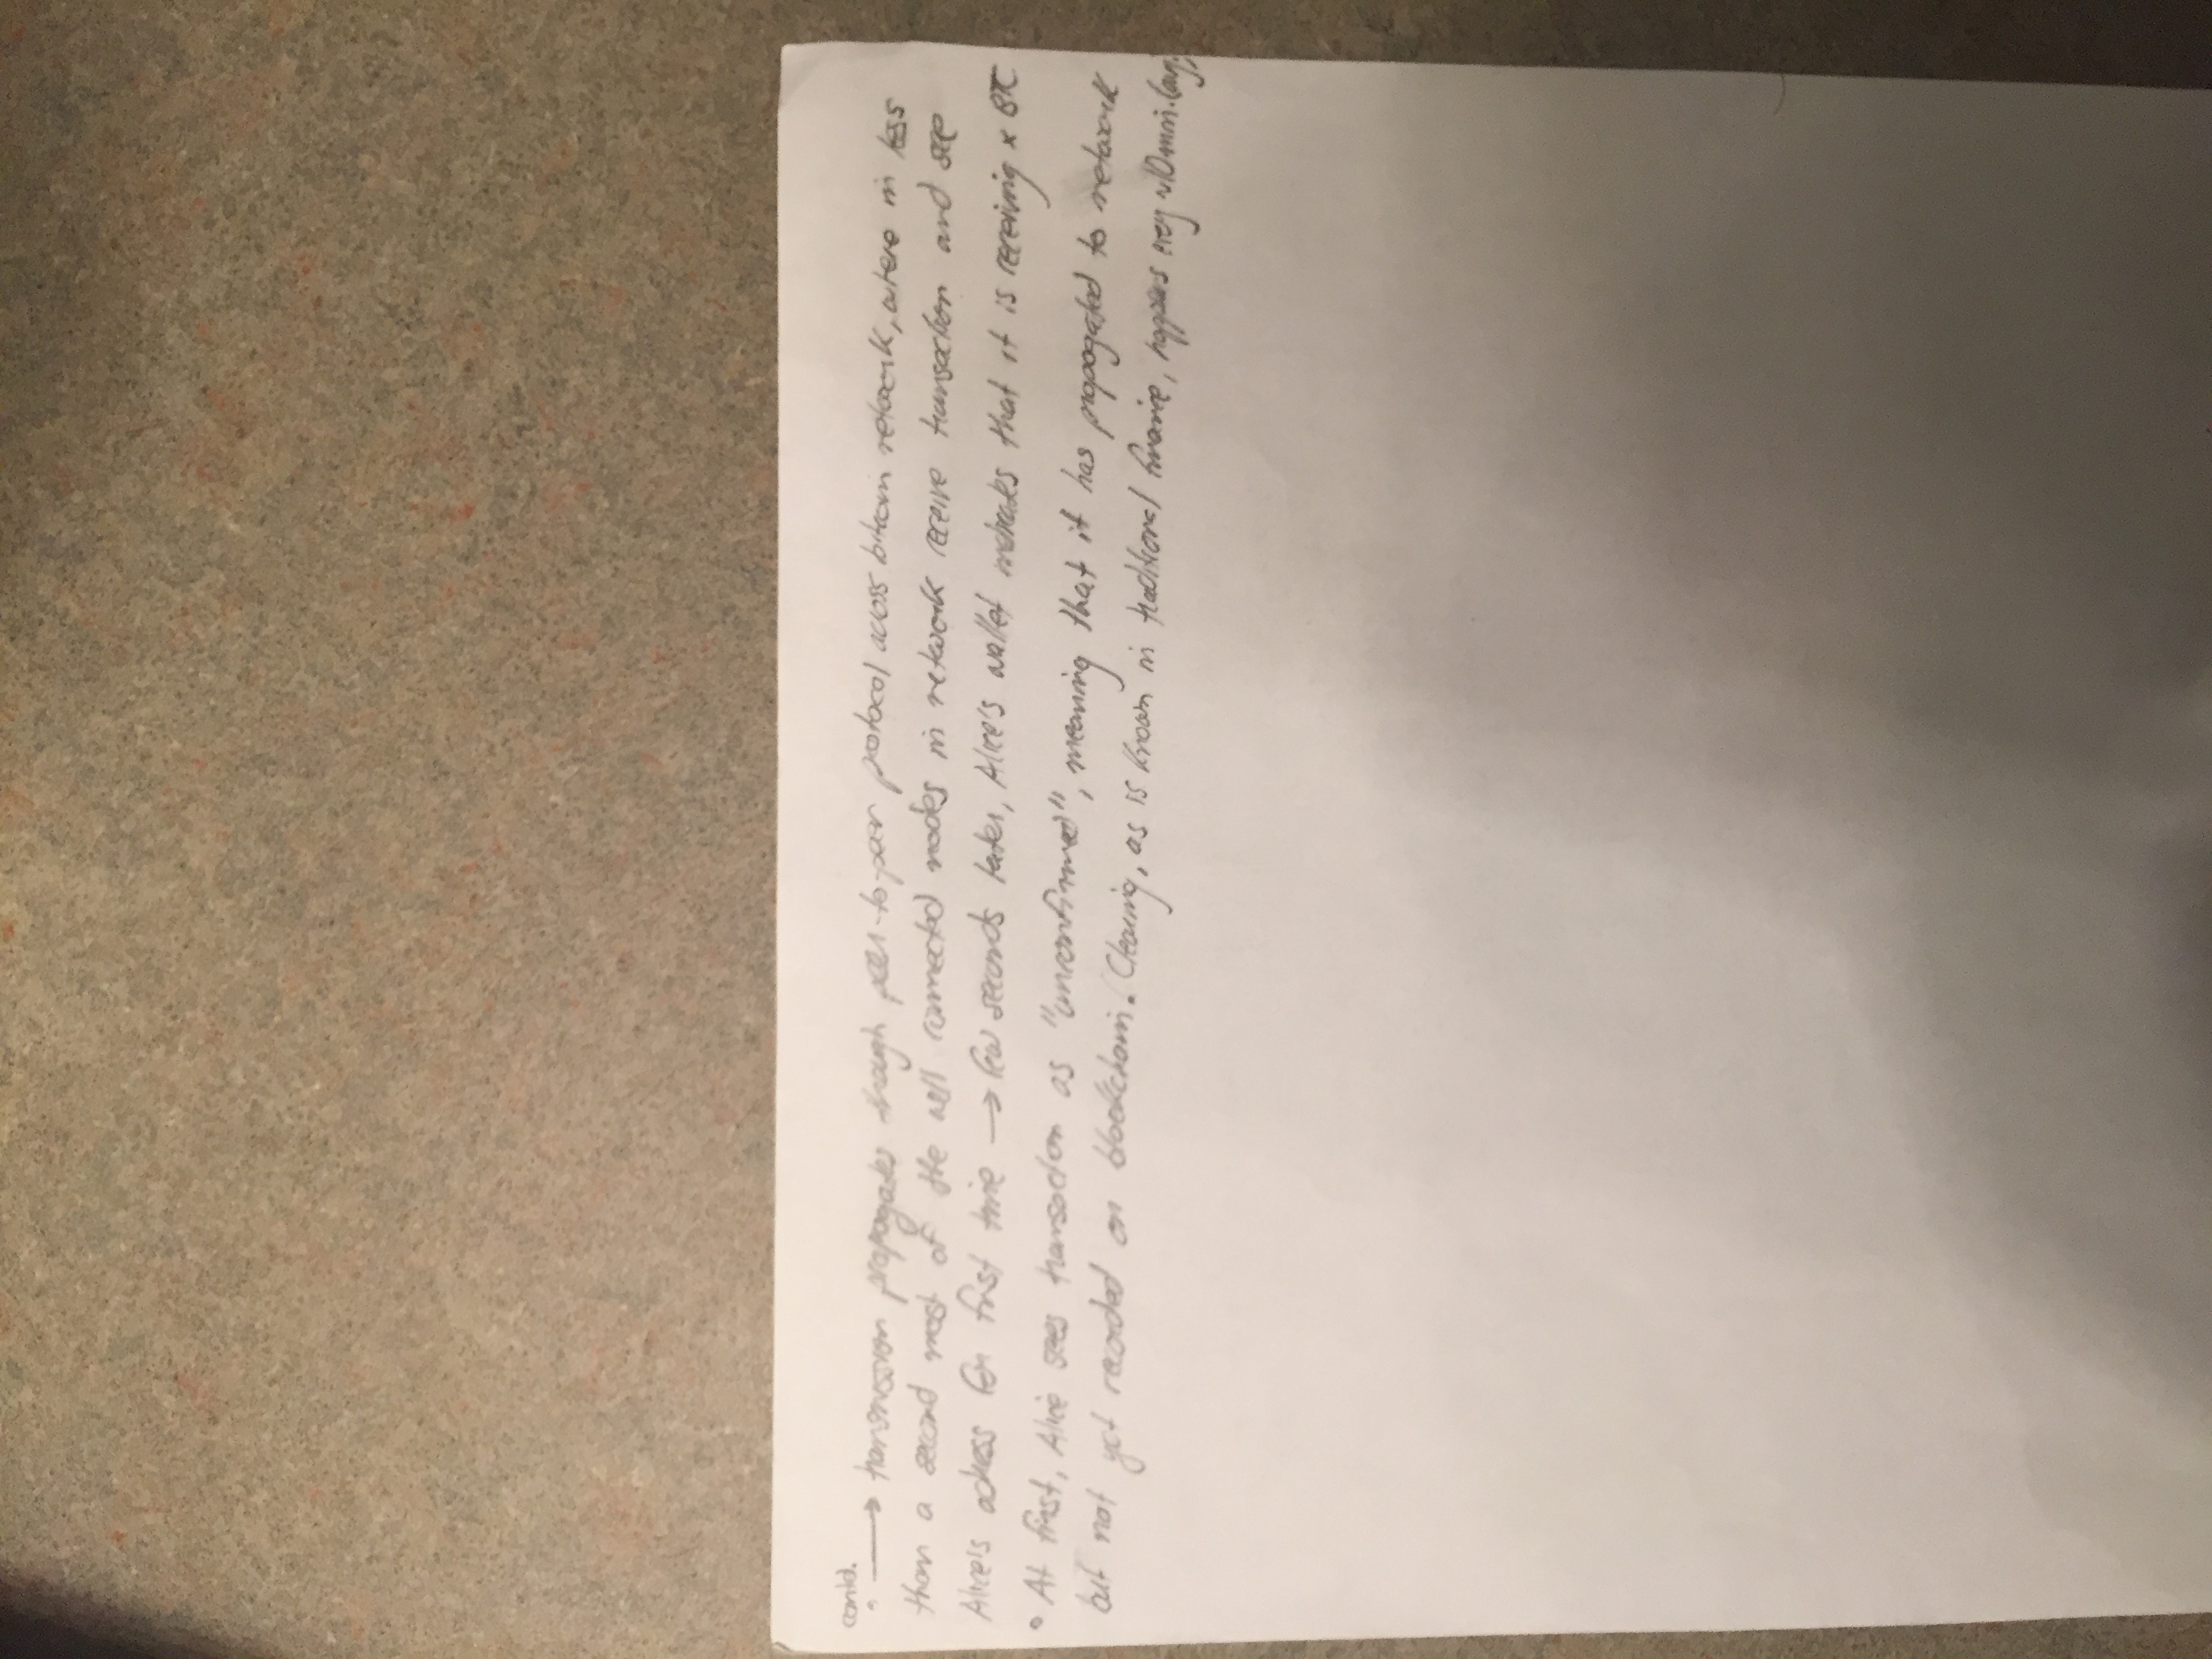 contd.
◦ ⟶ transmission propagates through peer-to-peer protocol across bitcoin network, where in less
than a second most of the well connected nodes in network receive transaction and see
Alice's address for first time → few seconds later, Alice's wallet indicates that it is receiving x BTC
◦ At first, Alice sees transaction as "unconfirmed", meaning that it has propagated to network
but not yet recorded on blockchain. (Clearing, as is known in traditional finance, happens every ~10 min.